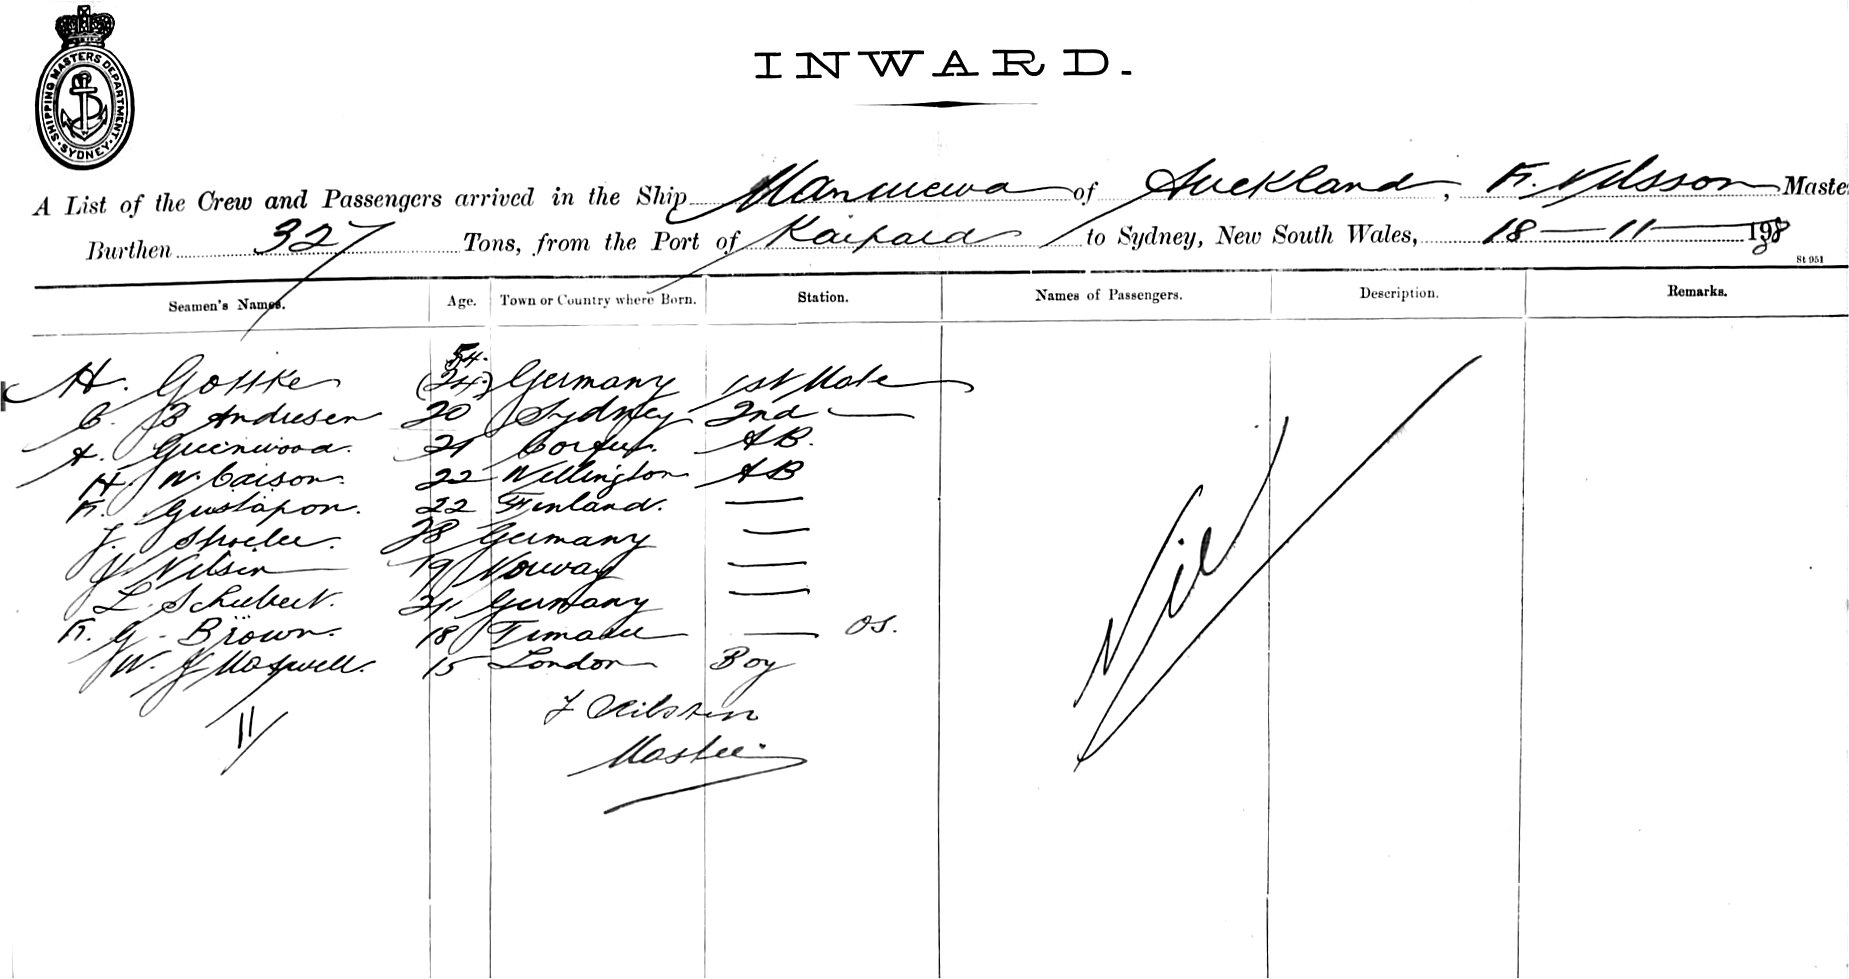 SHIPPING MASTERS DEPARTMENT
SYDNEY
INWARD.
A List of the Crew and Passengers arrived in the Ship Manurewa of Auckland, F. Nilsson Maste
Burthen 327 Tons, from the Port of Kaipara to Sydney, New South Wales, 18 — 11 — 198
St 951
Seamen's Names. Age. Town or Country where Born. Station. Names of Passengers. Description. Remarks.
54.
H. Gottke (24.) Germany 1st Mate
C. B Andresen 20 Sydney 2nd —
A. Greenwood. 21 A.B.
H. W. 22 Wellington AB
F. 22 Finland. —
J. 28 Germany —
J Nilsen 19 Norway —
L. Schubert. 21 Germany —
F. G. Brown. 18 Timaru — OS.
W. J Maxwell. 15 London Boy
Nil
11
F Nilsson
Master